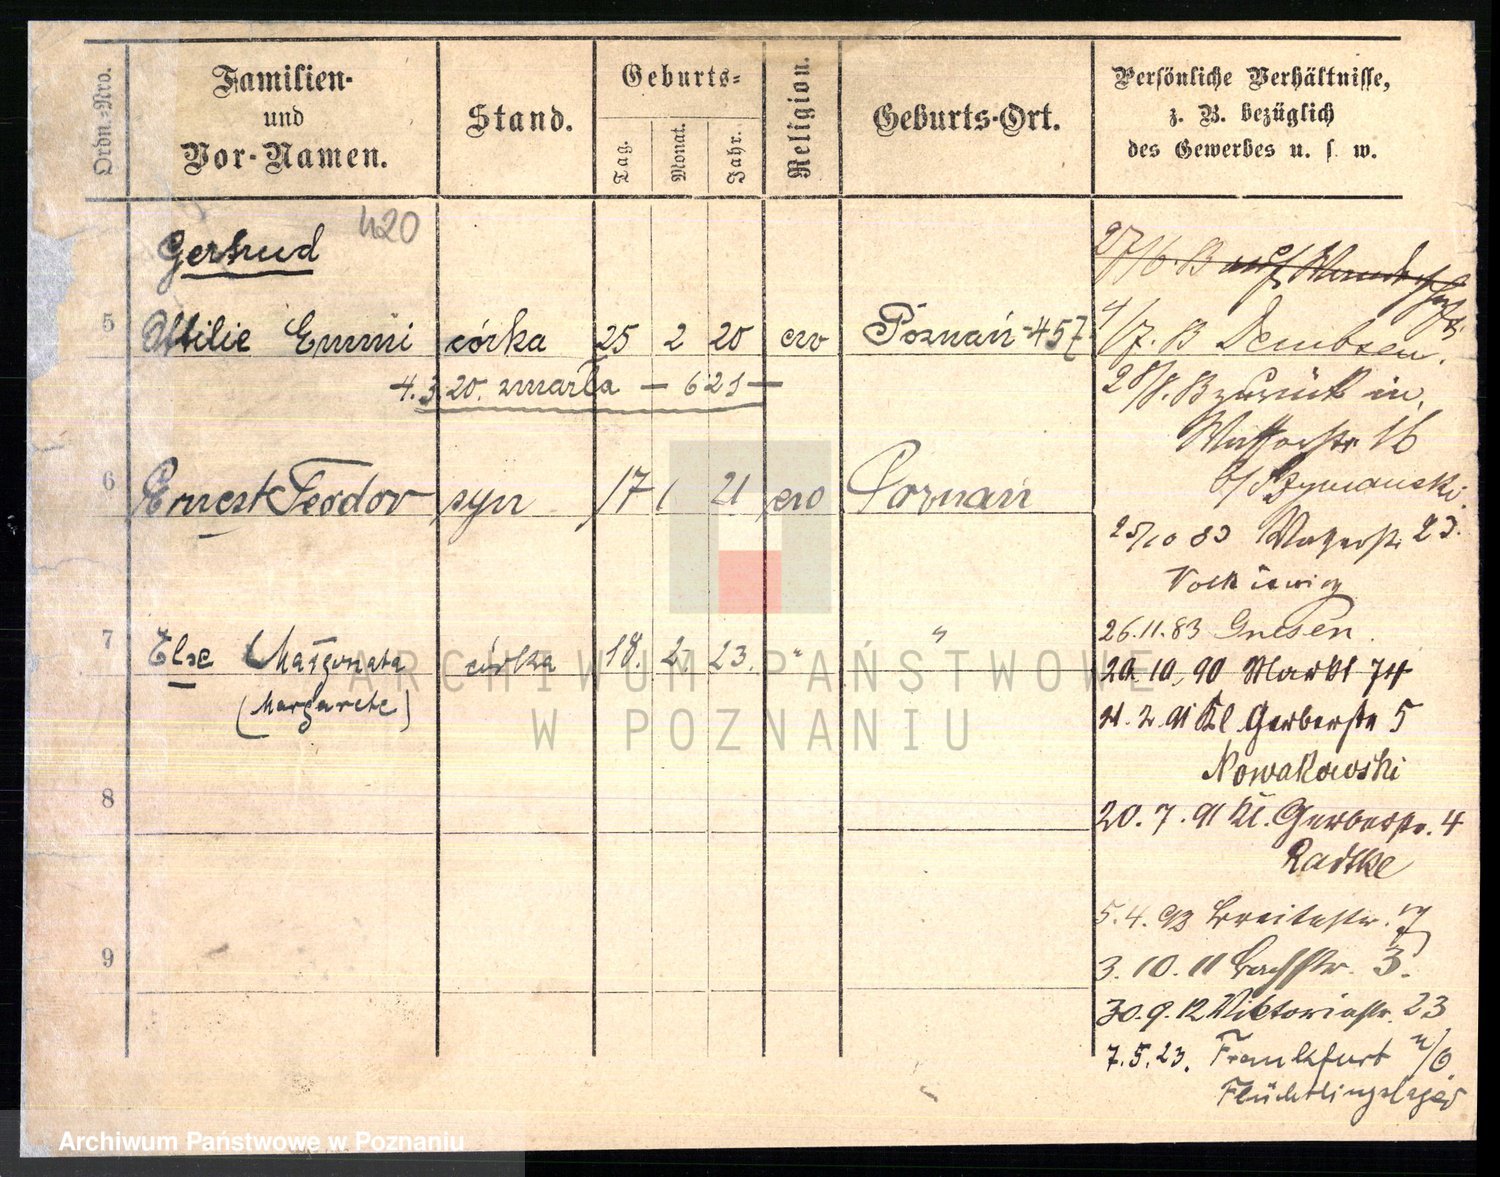 Ordn.-Nro.
Familien-
und
Vor-Namen.
Stand.
Geburts-
Tag.
Monat.
Jahr.
Religion.
Geburts-Ort.
Persönliche Verhältnisse,
z. B. bezüglich
des Gewerbes u. s. w.
420
Gertrud
5 Ottilie Emmi córka 25 2 20 ew Poznań-457
4.3.20. zmarła — 621 —
6 Ernest Teodor syn 17 1 21 ew Poznań
7 Else Małgorzata córka 18. 2 23. " "
(Margarete)
8
9
27/6. B auf
4/7. B Dembsen.
28/8. B zurück in
16
b/Szymanski
25/10 83 23.
Volkiewicz
26.11.83 Gnesen.
20.10.90 Markt 74
21.2.91 Kl. Gerberstr 5
Nowakowski
20.7.91 Kl. Gerberstr. 4
Radtke
5.4.93 Breitestr. 7
3.10.11 Bachstr. 3.
30.9.12 Viktoriastr. 23
7.5.23. Frankfurt a/O.
Flüchtlingslager
ARCHIWUM PAŃSTWOWE
W POZNANIU
Archiwum Państwowe w Poznaniu